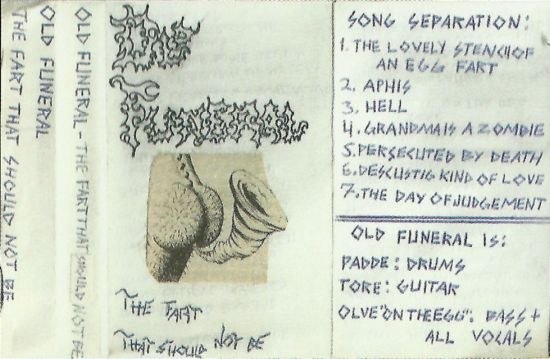 THE FART THAT SHOULD NOT BE
OLD FUNERAL
OLD FUNERAL - THE FART THAT SHOULD NOT BE
OLD
FUNERAL
THE FART
THAT SHOULD NOT BE
SONG SEPARATION:
1. THE LOVELY STENCH OF
AN EGG FART
2. APHIS
3. HELL
4. GRANDMA IS A ZOMBIE
5. PERSECUTED BY DEATH
6. DESCUSTIG KIND OF LOVE
7. THE DAY OF JUDGEMENT
OLD FUNERAL IS:
PADDE: DRUMS
TORE: GUITAR
OLVE "ON THE EGG": BASS +
ALL VOCALS